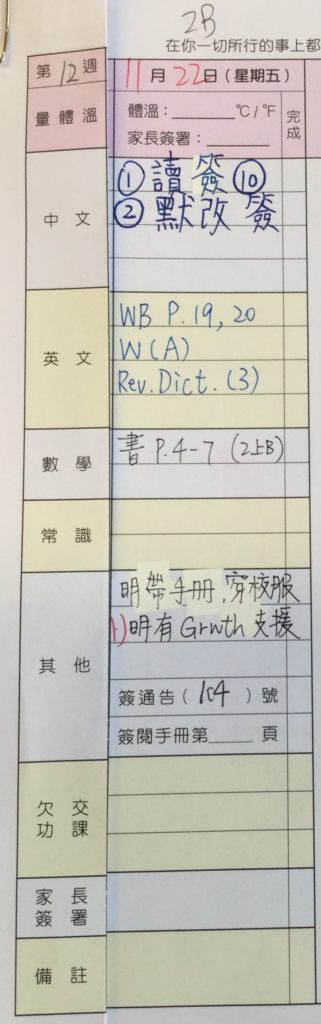 2B
在你一切所行的事上都
第 12 週 11 月 22 日 (星期五)
量體溫 體溫：______ ℃/℉ 完成
家長簽署：______
中文 ① 讀 簽 ⑩
② 默改 簽
英文 WB P.19, 20
W(A)
Rev. Dict. (3)
數學 書 P.4-7 (2上B)
常識
其他 明帶手冊，穿校服
1)明有 Grwth 支援
簽通告( 164 )號
簽閱手冊第______頁
欠交功課
家長簽署
備註